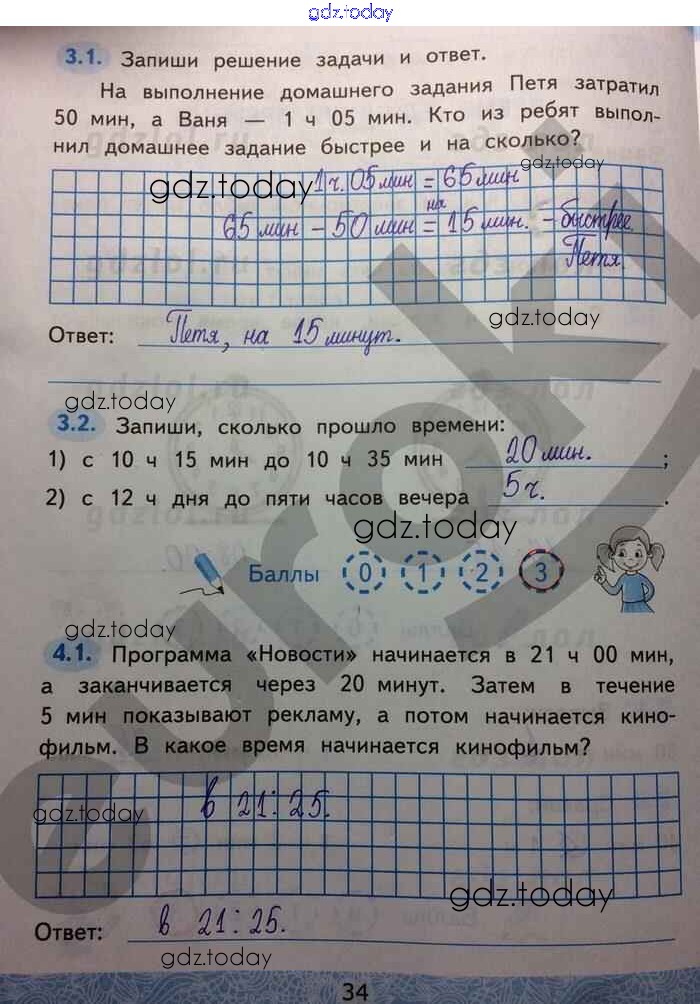 gdz.today
3.1. Запиши решение задачи и ответ.
На выполнение домашнего задания Петя затратил
50 мин, а Ваня — 1 ч 05 мин. Кто из ребят выпол-
нил домашнее задание быстрее и на сколько?
gdz.today
gdz.today 1ч. 05 мин = 65 мин
на
65 мин – 50 мин = 15 мин. – быстрее
Петя
gdz.today
Ответ: Петя, на 15 минут.
gdz.today
3.2. Запиши, сколько прошло времени:
1) с 10 ч 15 мин до 10 ч 35 мин 20 мин. ;
2) с 12 ч дня до пяти часов вечера 5 ч. .
gdz.today
Баллы 0 1 2 3
gdz.today
4.1. Программа «Новости» начинается в 21 ч 00 мин,
а заканчивается через 20 минут. Затем в течение
5 мин показывают рекламу, а потом начинается кино-
фильм. В какое время начинается кинофильм?
gdz.today в 21:25.
gdz.today
Ответ: в 21:25.
gdz.today
34
euroki